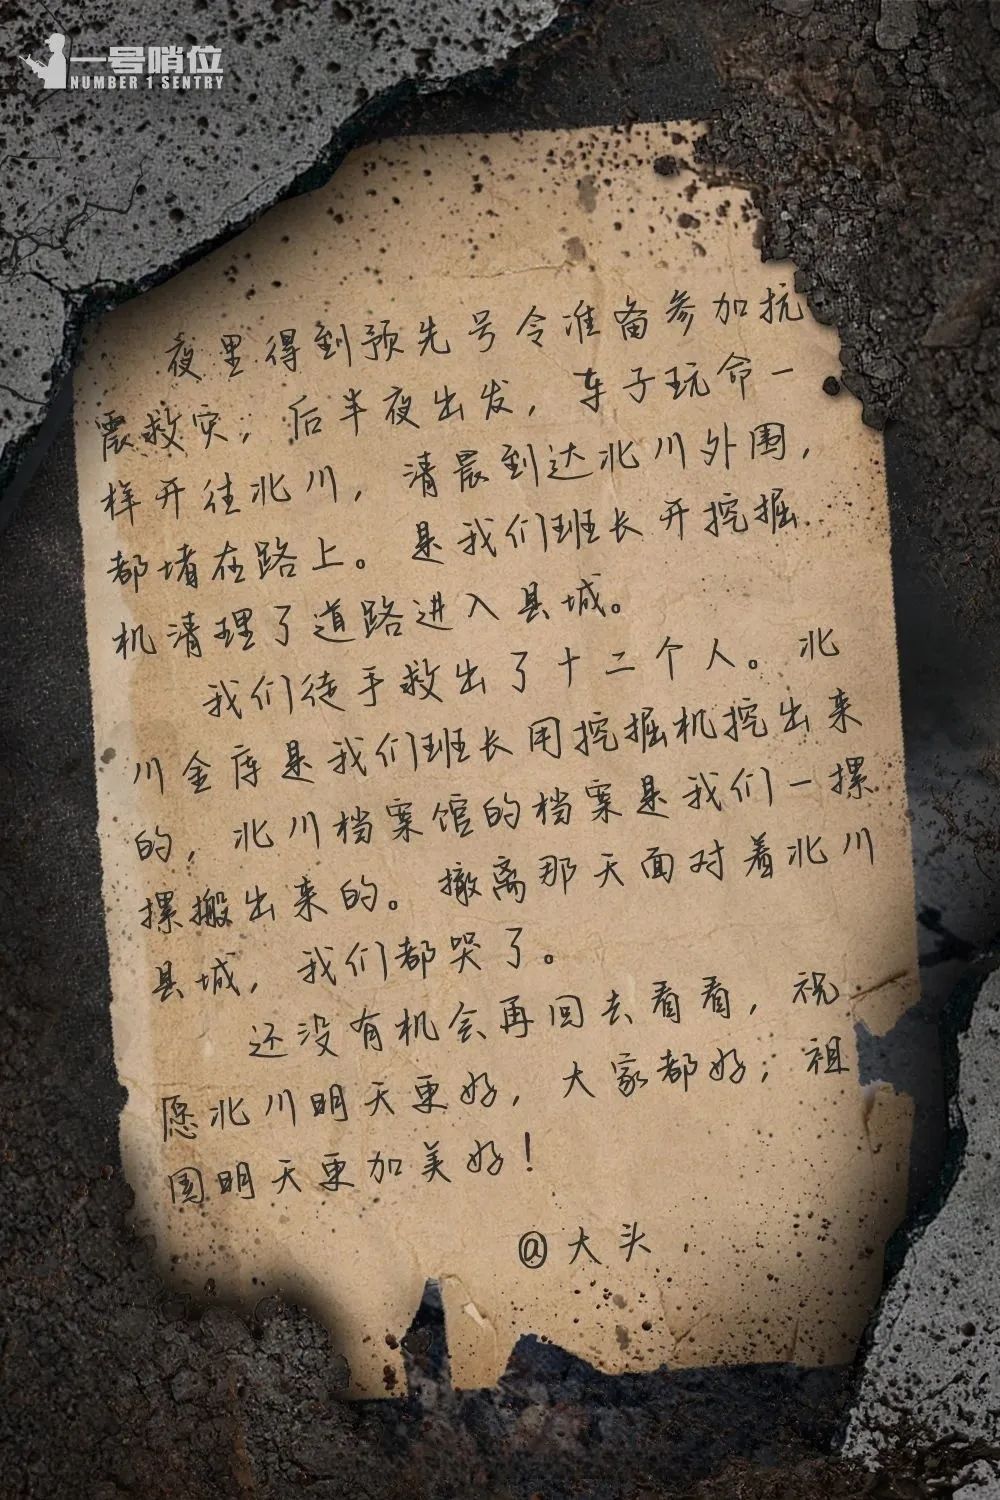 一号哨位
NUMBER 1 SENTRY
夜里得到预先号令准备参加抗
震救灾，后半夜出发，车子玩命一
样开往北川，清晨到达北川外围，
都堵在路上。是我们班长开挖掘
机清理了道路进入县城。
我们徒手救出了十二个人。北
川金库是我们班长用挖掘机挖出来
的，北川档案馆的档案是我们一摞
摞搬出来的。撤离那天面对着北川
县城，我们都哭了。
还没有机会再回去看看，祝
愿北川明天更好，大家都好；祖
国明天更加美好！
@大头